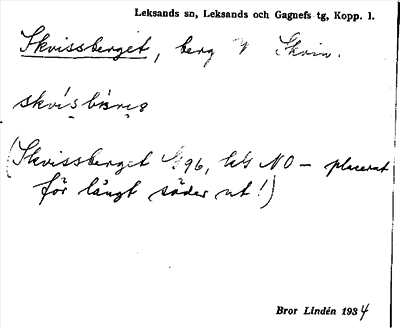 Leksands sn, Leksands och Gagnefs tg, Kopp. l.
Skvissberget, berg V Skvin.
(Skvissberget 96, NO – placerat
för långt söder ut!)
Bror Lindén 1934